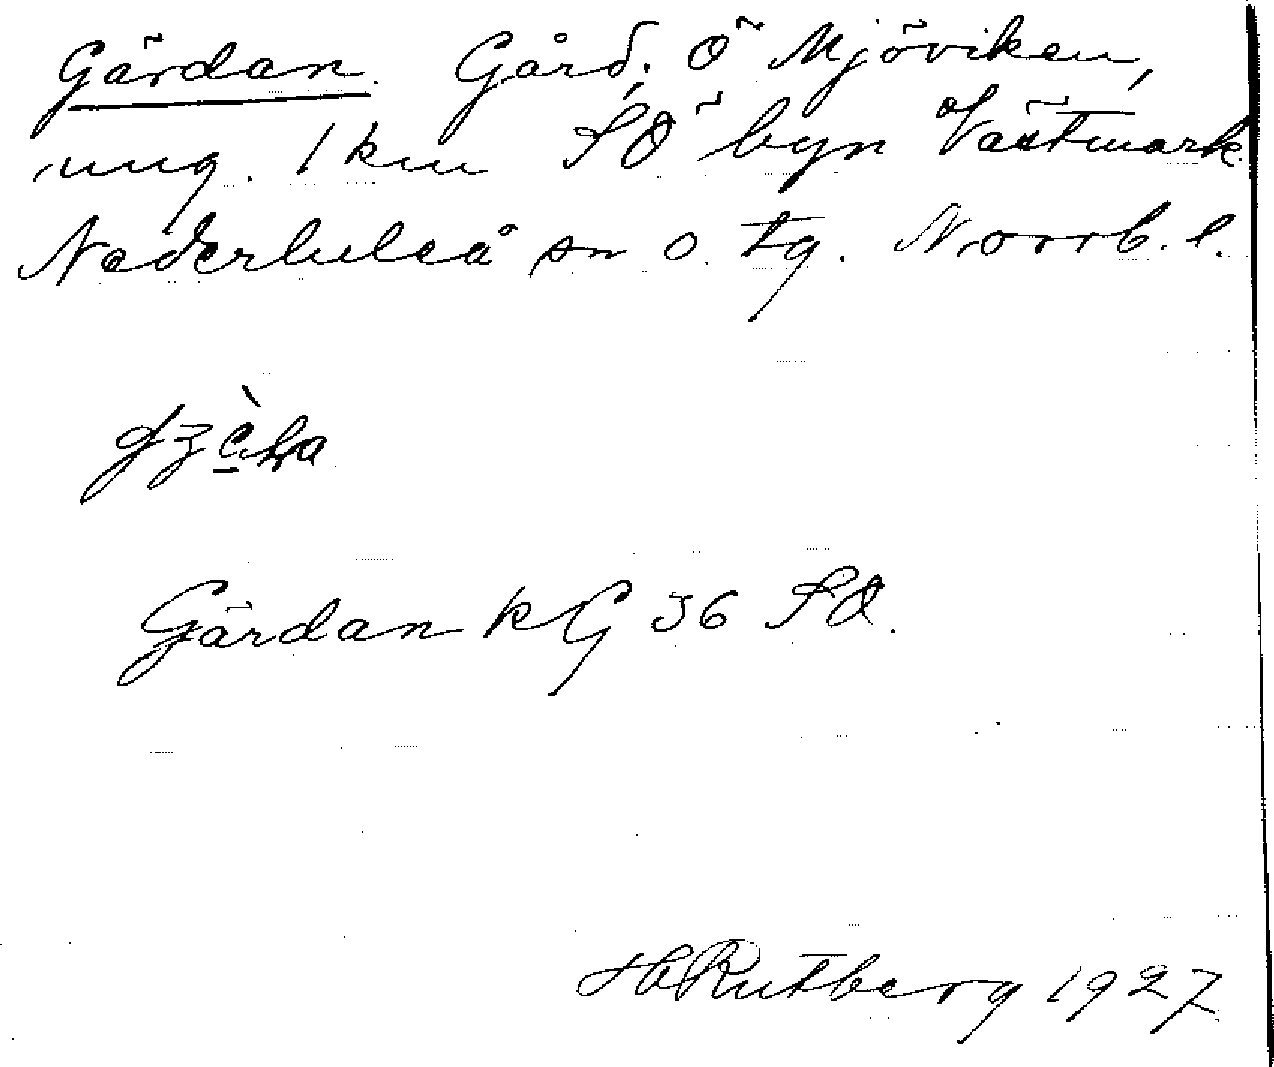 Gärdan. Gård, Ö Mjöviken,
ung. 1 km SÖ byn Västmark
Nederluleå sn o. tg. Norrb. l.
Gärdan kG 36 SO.
H Rutberg 1927